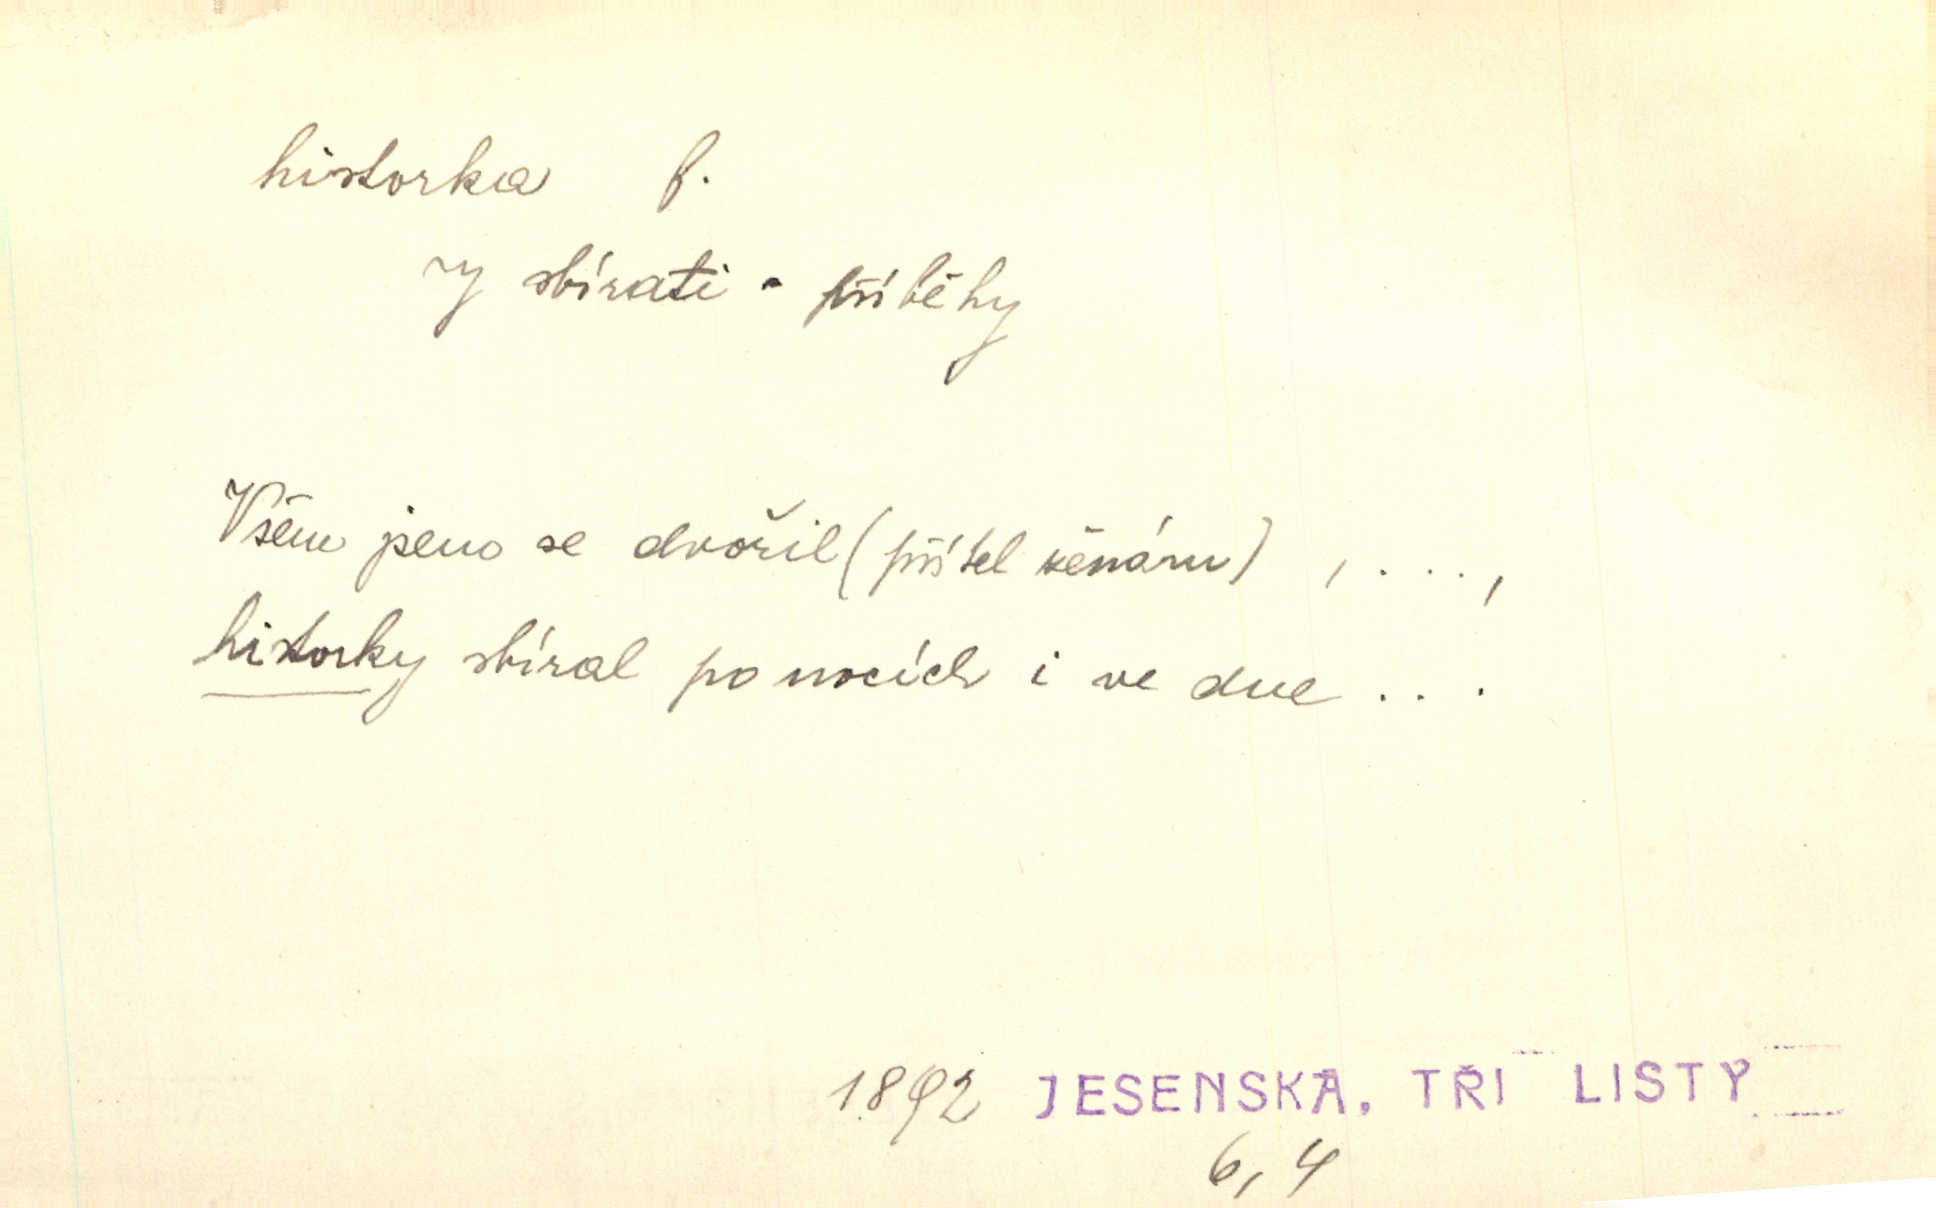 historka f.
vy sbírati - příběhy
Všem jeno se dvořil (přítel ženám) , . . . ,
historky sbíral po nocích i ve dne . . .
1892 JESENSKÁ. TŘI LISTY
6, 4